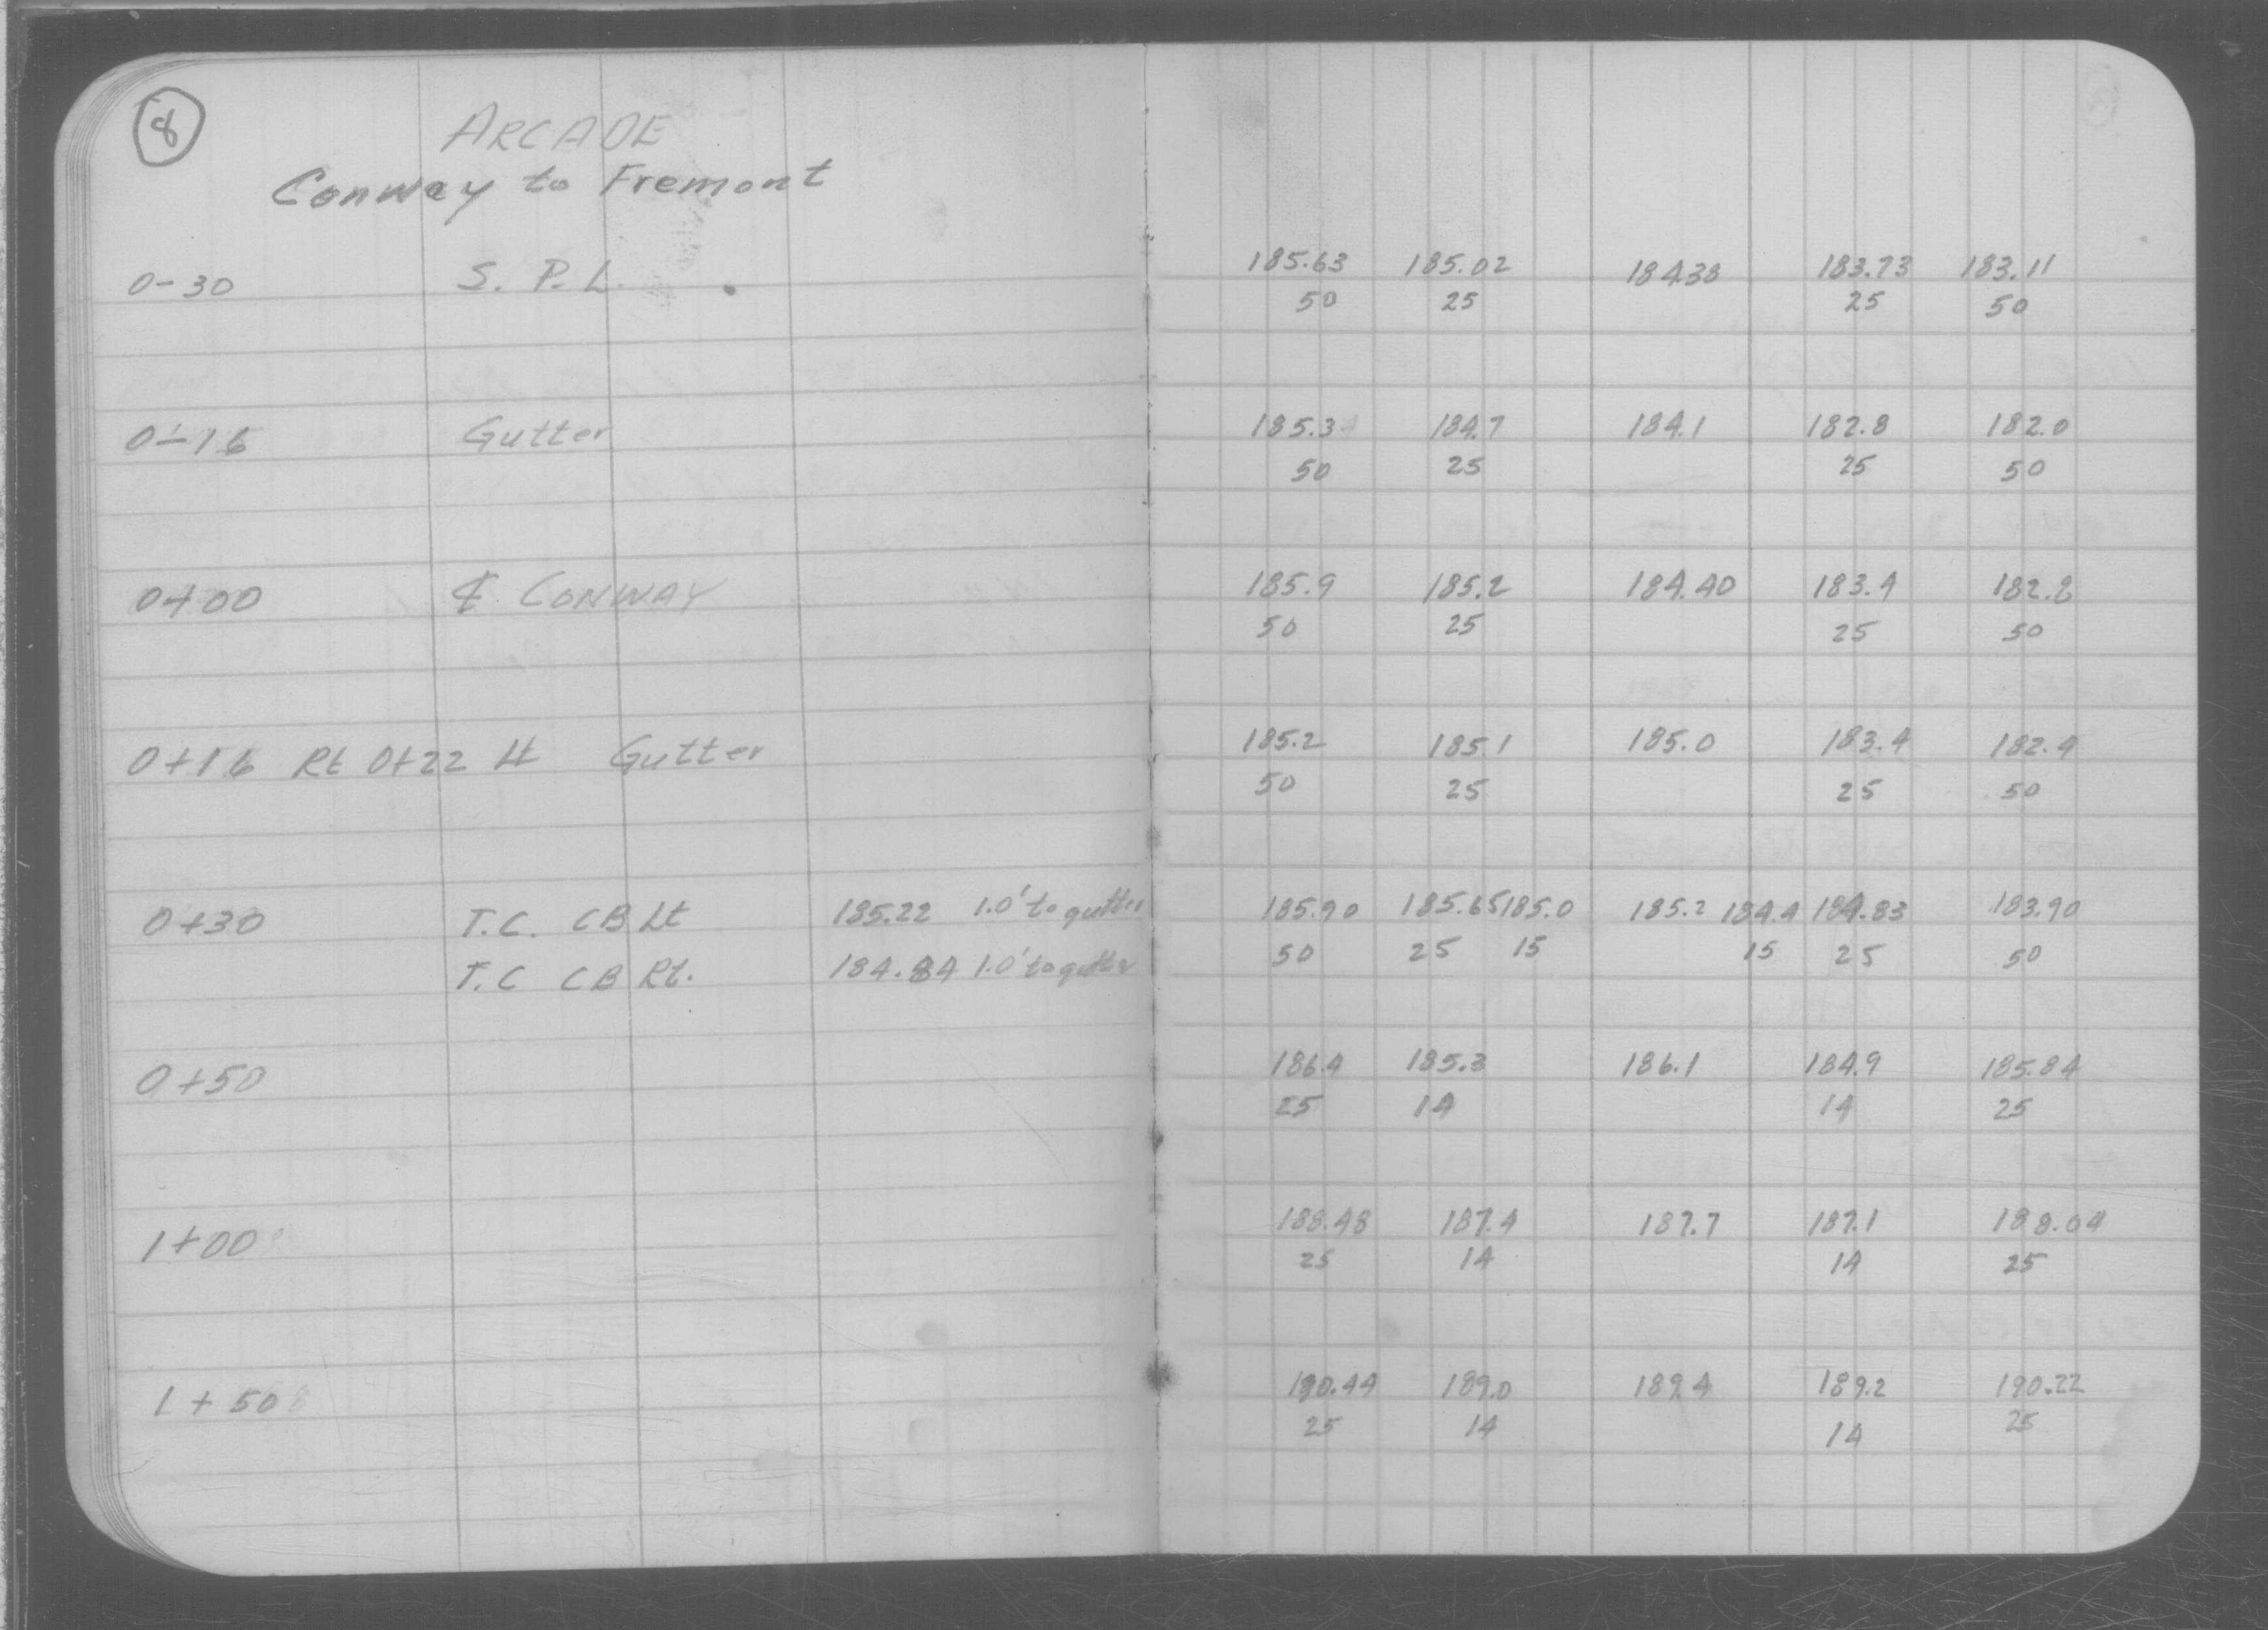 8
ARCADE
Conway to Fremont
0-30 S. P. L. 185.63 185.02 184.38 183.73 183.11
50 25 25 50
0-16 Gutter 185.3 184.7 184.1 182.8 182.0
50 25 25 50
0+00 ℄ CONWAY 185.9 185.2 184.40 183.4 182.8
50 25 25 50
0+16 Rt 0+22 Lt Gutter 185.2 185.1 185.0 183.4 182.4
50 25 25 50
0+30 T.C. CB Lt 185.22 1.0' to gutter 185.90 185.65 185.0 185.2 184.4 184.83 183.90
T.C CB Rt. 184.84 1.0' to gutter 50 25 15 15 25 50
0+50 186.4 185.3 186.1 184.9 185.84
25 14 14 25
1+00 188.48 187.4 187.7 187.1 188.04
25 14 14 25
1+50 190.44 189.0 189.4 189.2 190.22
25 14 14 25